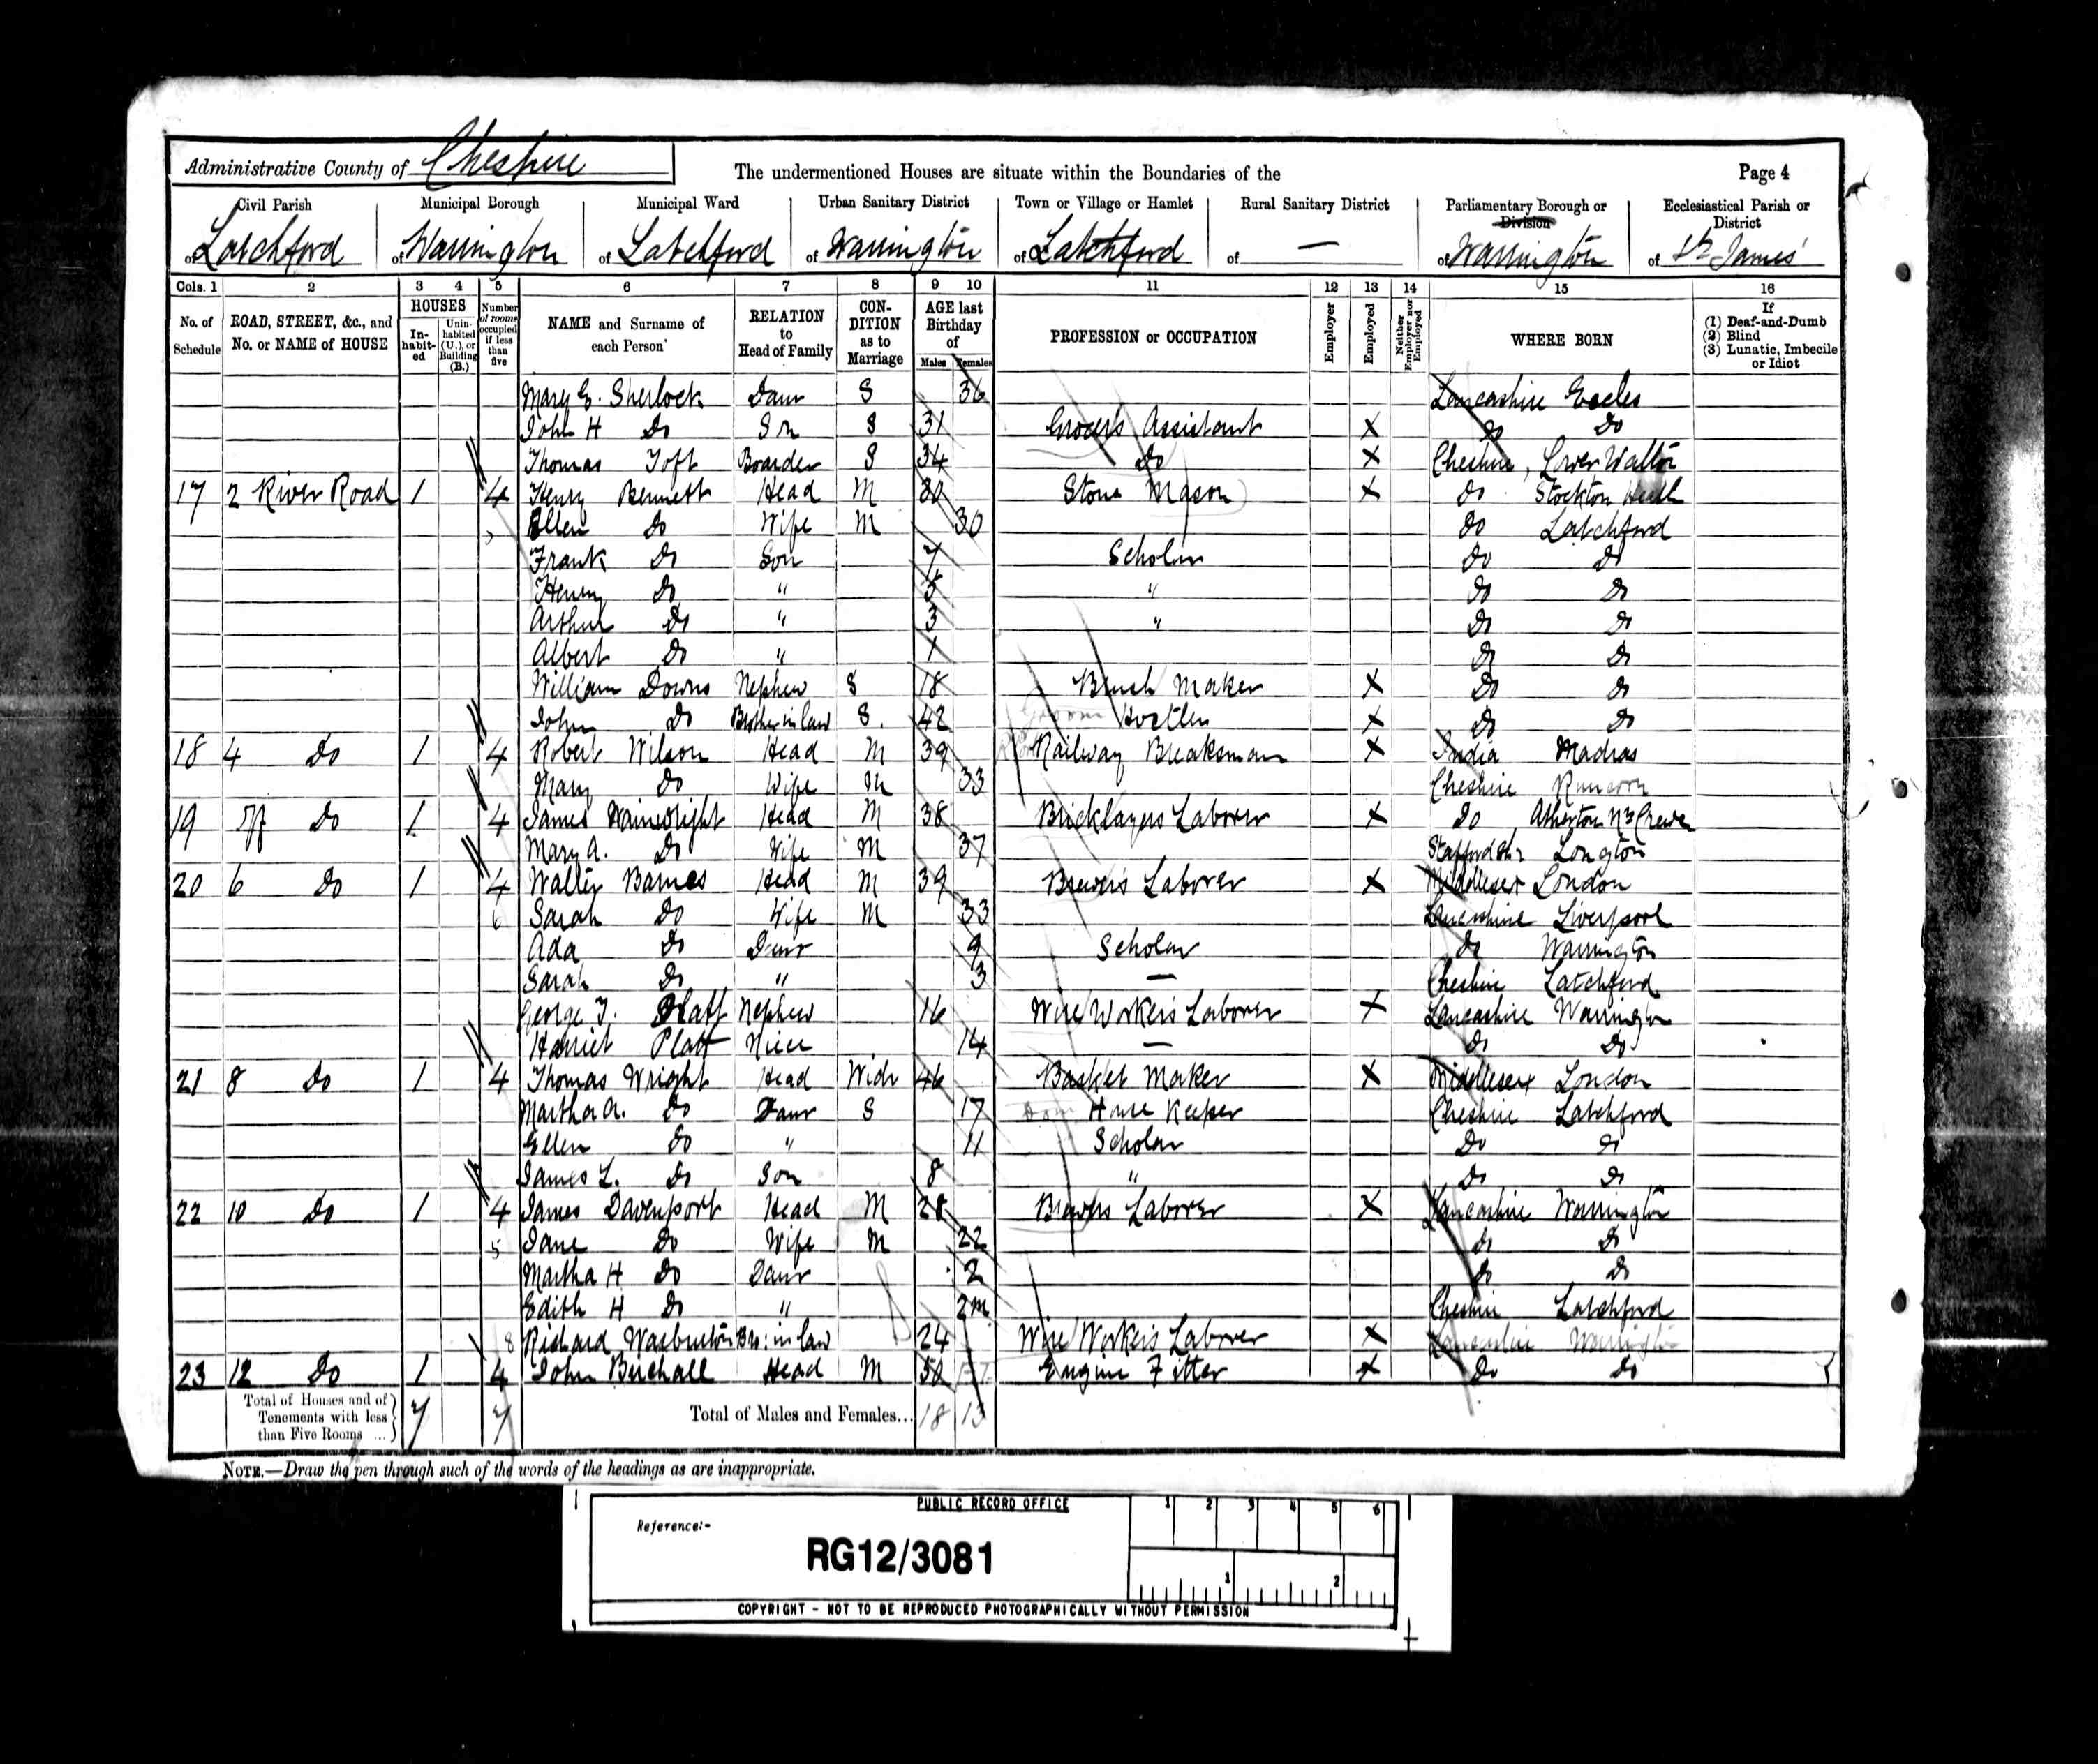 Administrative County of Cheshire
The undermentioned Houses are situate within the Boundaries of the
Page 4
Civil Parish Municipal Borough Municipal Ward Urban Sanitary District Town or Village or Hamlet Rural Sanitary District Parliamentary Borough or Division Ecclesiastical Parish or District
of Latchford of Warrington of Latchford of Warrington of Latchford of — of Warrington of St James'
Cols. 1 2 3 4 5 6 7 8 9 10 11 12 13 14 15 16
No. of Schedule ROAD, STREET, &c., and No. or NAME of HOUSE HOUSES In-habit-ed Unin-habited (U.), or Building (B.) Number of rooms occupied if less than five NAME and Surname of each Person RELATION to Head of Family CON-DITION as to Marriage AGE last Birthday of Males Females PROFESSION or OCCUPATION Employer Employed Neither Employer nor Employed WHERE BORN If (1) Deaf-and-Dumb (2) Blind (3) Lunatic, Imbecile or Idiot
Mary E. Sherlock Daur S 36 Lancashire Eccles
John H Do Son S 31 Grocer's Assistant X Do Do
Thomas Toft Boarder S 34 Do X Cheshire, Lower Walton
17 2 River Road 1 4 Henry Bennett Head M Stone Mason X Do Stockton Heath
Ellen Do Wife M 30 Do Latchford
Frank Do Son 7 Scholar Do Do
Henry Do " 5 " Do Do
Arthur Do " 3 " Do Do
Albert Do " 1 Do Do
William Downs Nephew S 18 Brush Maker X Do Do
John Do Brother in law S. 42 Groom Hostler X Do Do
18 4 Do 1 4 Robert Wilson Head M 39 Railway Breaksman X India Madras
Mary Do Wife M 33 Cheshire Runcorn
19 off Do 1 4 James Wainwright Head M 38 Bricklayers Laborer X Do Nr Crewe
Mary A. Do Wife M 37 Staffordshr Longton
20 6 Do 1 4 Walter Barnes Head M 39 Brewer's Laborer X Middlesex London
6 Sarah Do Wife M 33 Lancashire Liverpool
Ada Do Daur 9 Scholar Do Warrington
Sarah Do " 3 — Cheshire Latchford
George T. Platt Nephew 16 Wire Worker's Laborer X Lancashire Warrington
Harriet Platt Niece 14 — Do Do
21 8 Do 1 4 Thomas Wright Head Widr 46 Basket Maker X Middlesex London
Martha A. Do Daur S 17 House Keeper Cheshire Latchford
Ellen Do " 11 Scholar Do Do
James L. Do Son 8 " Do Do
22 10 Do 1 4 James Davenport Head M 28 Brewers Laborer X Lancashire Warrington
5 Jane Do Wife M 22 Do Do
Martha H Do Daur 2 Do Do
Edith H Do " 2m Cheshire Latchford
8 Richard Wasburton Bro: in law 24 Wire Worker's Laborer X Lancashire Warrington
23 12 Do 1 4 John Birchall Head M Engine Fitter X Do Do
Total of Houses and of Tenements with less than Five Rooms ... 7 7 Total of Males and Females... 18 13
NOTE.—Draw the pen through such of the words of the headings as are inappropriate.
PUBLIC RECORD OFFICE
1 2 3 4 5 6
Reference:-
RG12/3081
1 2
COPYRIGHT - NOT TO BE REPRODUCED PHOTOGRAPHICALLY WITHOUT PERMISSION